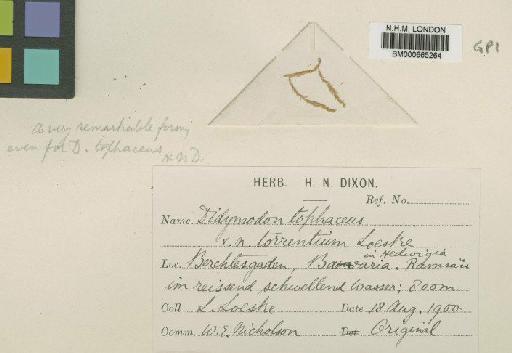 N.H.M. LONDON
BM000565264
GP1
a very remarkable form,
even for D. tophaceus
H.N.D.
HERB. H. N. DIXON.
Ref. No.
Name Didymodon tophaceus
v. n. torrentium Loeske
in Hedwigia
Loc. Berchtesgaden, Bavaria. Ramsau
im reissend schwellend Wasser; 800m
Coll. L. Loeske Date 18 Aug. 1900
Comm. W.E. Nicholson Det. Original